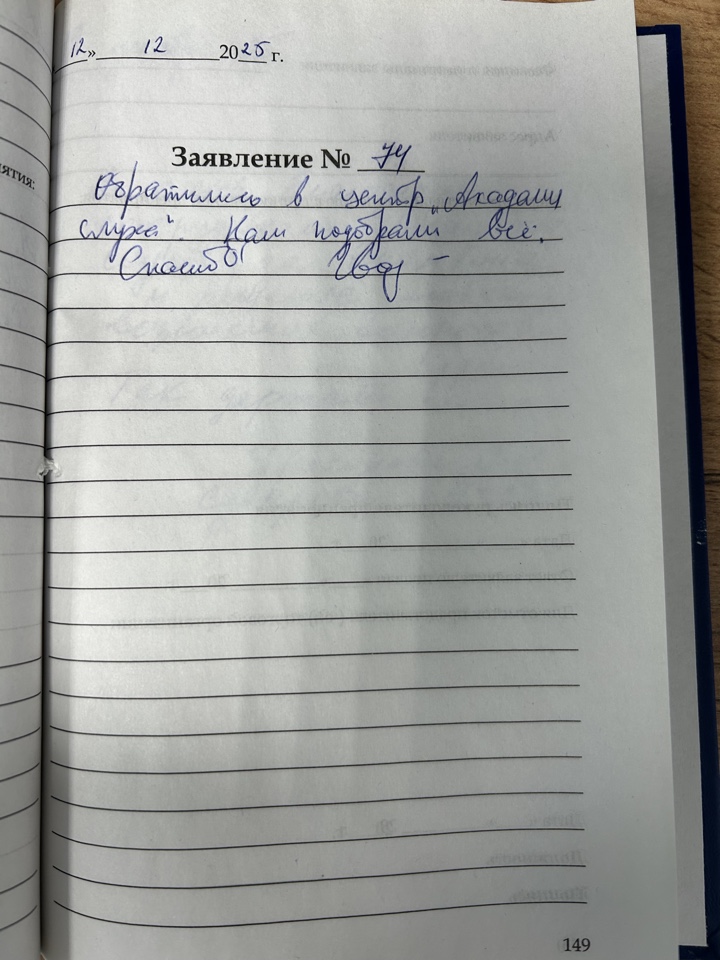 12» 12 2025 г.
ятия:
Заявление № 74
Обратились в центр „Академия
слуха". Нам подобрали все.
Спасибо
149